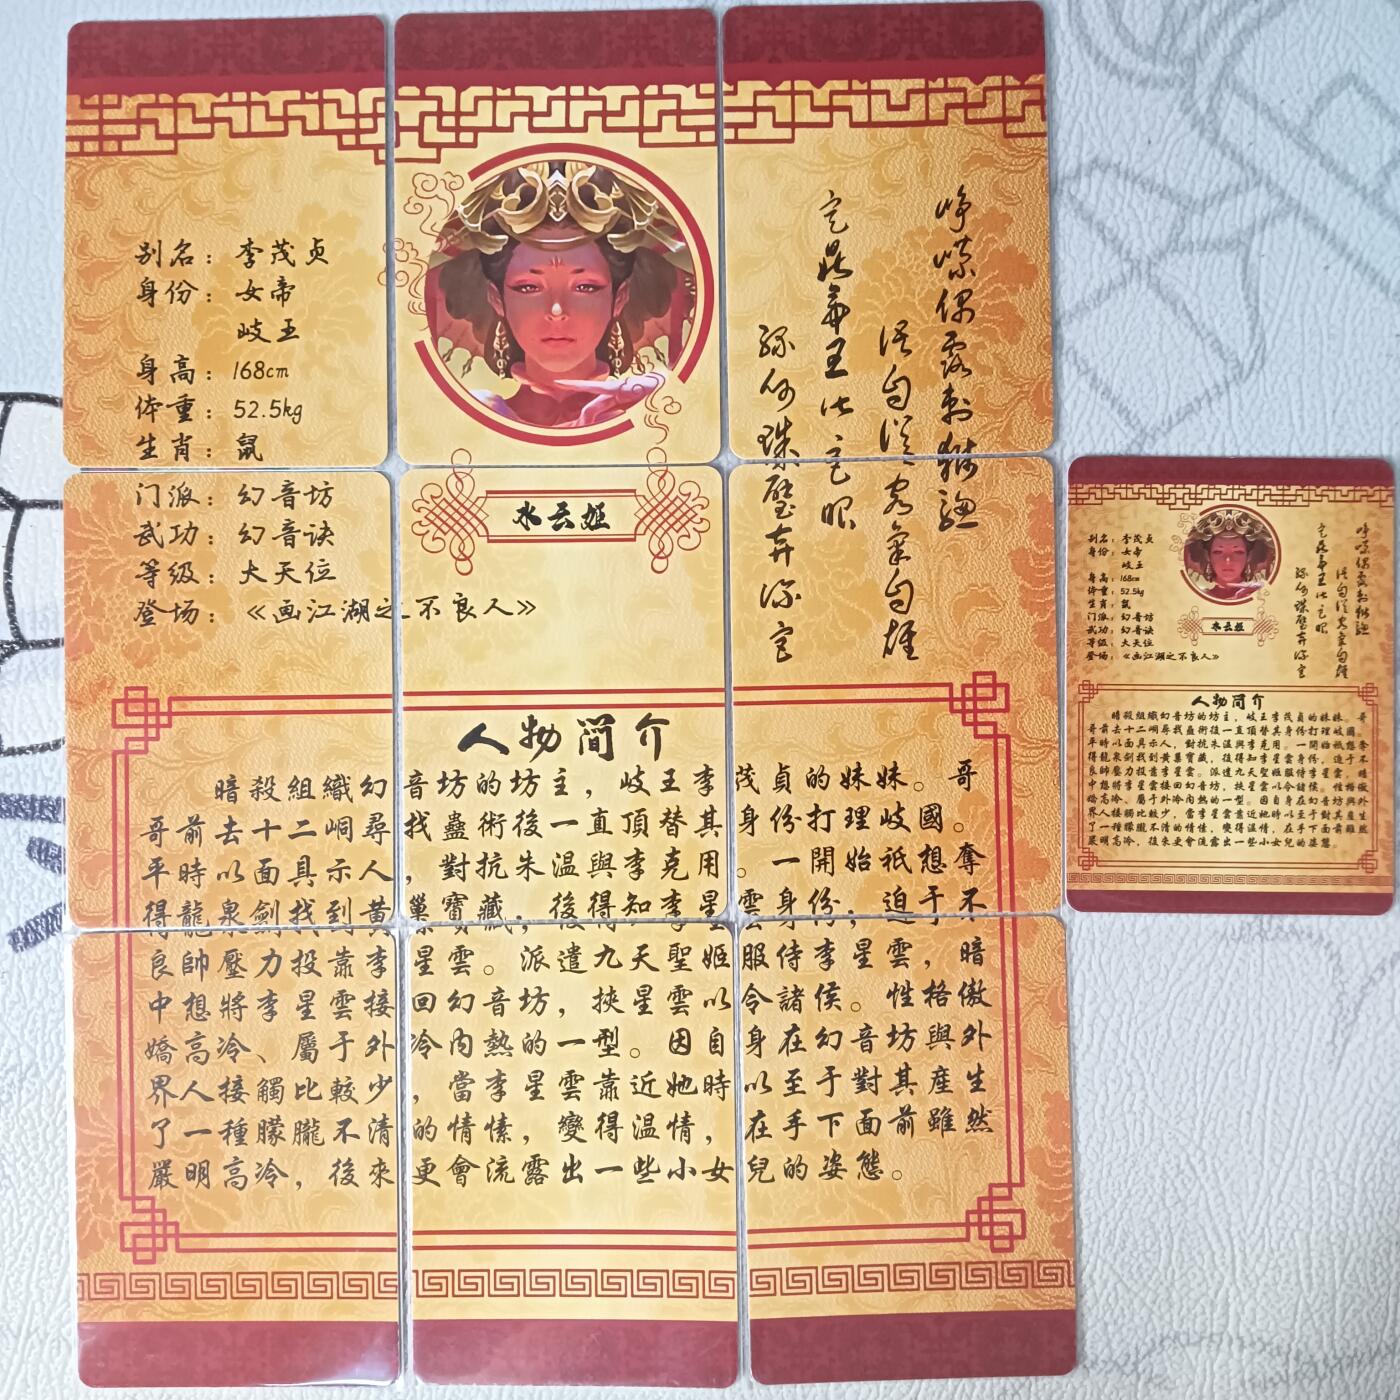 别名：李茂贞
身份：女帝
岐王
身高：168cm
体重：52.5kg
生肖：鼠
门派：幻音坊
武功：幻音诀
等级：大天位
登场：《画江湖之不良人》
水云姬
人物简介
暗殺組織幻音坊的坊主，岐王李茂貞的妹妹。哥
哥前去十二峒尋找蠱術後一直頂替其身份打理岐國。
平時以面具示人，對抗朱温與李克用。一開始祇想奪
得龍泉劍找到黄巢寶藏，後得知李星雲身份，迫于不
良帥壓力投靠李星雲。派遣九天聖姬服侍李星雲，暗
中想將李星雲接回幻音坊，挾星雲以令諸侯。性格傲
嬌高冷、屬于外冷内熱的一型。因自身在幻音坊與外
界人接觸比較少，當李星雲靠近她時以至于對其産生
了一種朦朧不清的情愫，變得温情，在手下面前雖然
嚴明高冷，後來更會流露出一些小女兒的姿態。
别名：李茂贞
身份：女帝
岐王
身高：168cm
体重：52.5kg
生肖：鼠
门派：幻音坊
武功：幻音诀
等级：大天位
登场：《画江湖之不良人》
水云姬
人物简介
暗殺組織幻音坊的坊主，岐王李茂貞的妹妹。哥
哥前去十二峒尋找蠱術後一直頂替其身份打理岐國。
平時以面具示人，對抗朱温與李克用。一開始祇想奪
得龍泉劍找到黄巢寶藏，後得知李星雲身份，迫于不
良帥壓力投靠李星雲。派遣九天聖姬服侍李星雲，暗
中想將李星雲接回幻音坊，挾星雲以令諸侯。性格傲
嬌高冷、屬于外冷内熱的一型。因自身在幻音坊與外
界人接觸比較少，當李星雲靠近她時以至于對其産生
了一種朦朧不清的情愫，變得温情，在手下面前雖然
嚴明高冷，後來更會流露出一些小女兒的姿態。